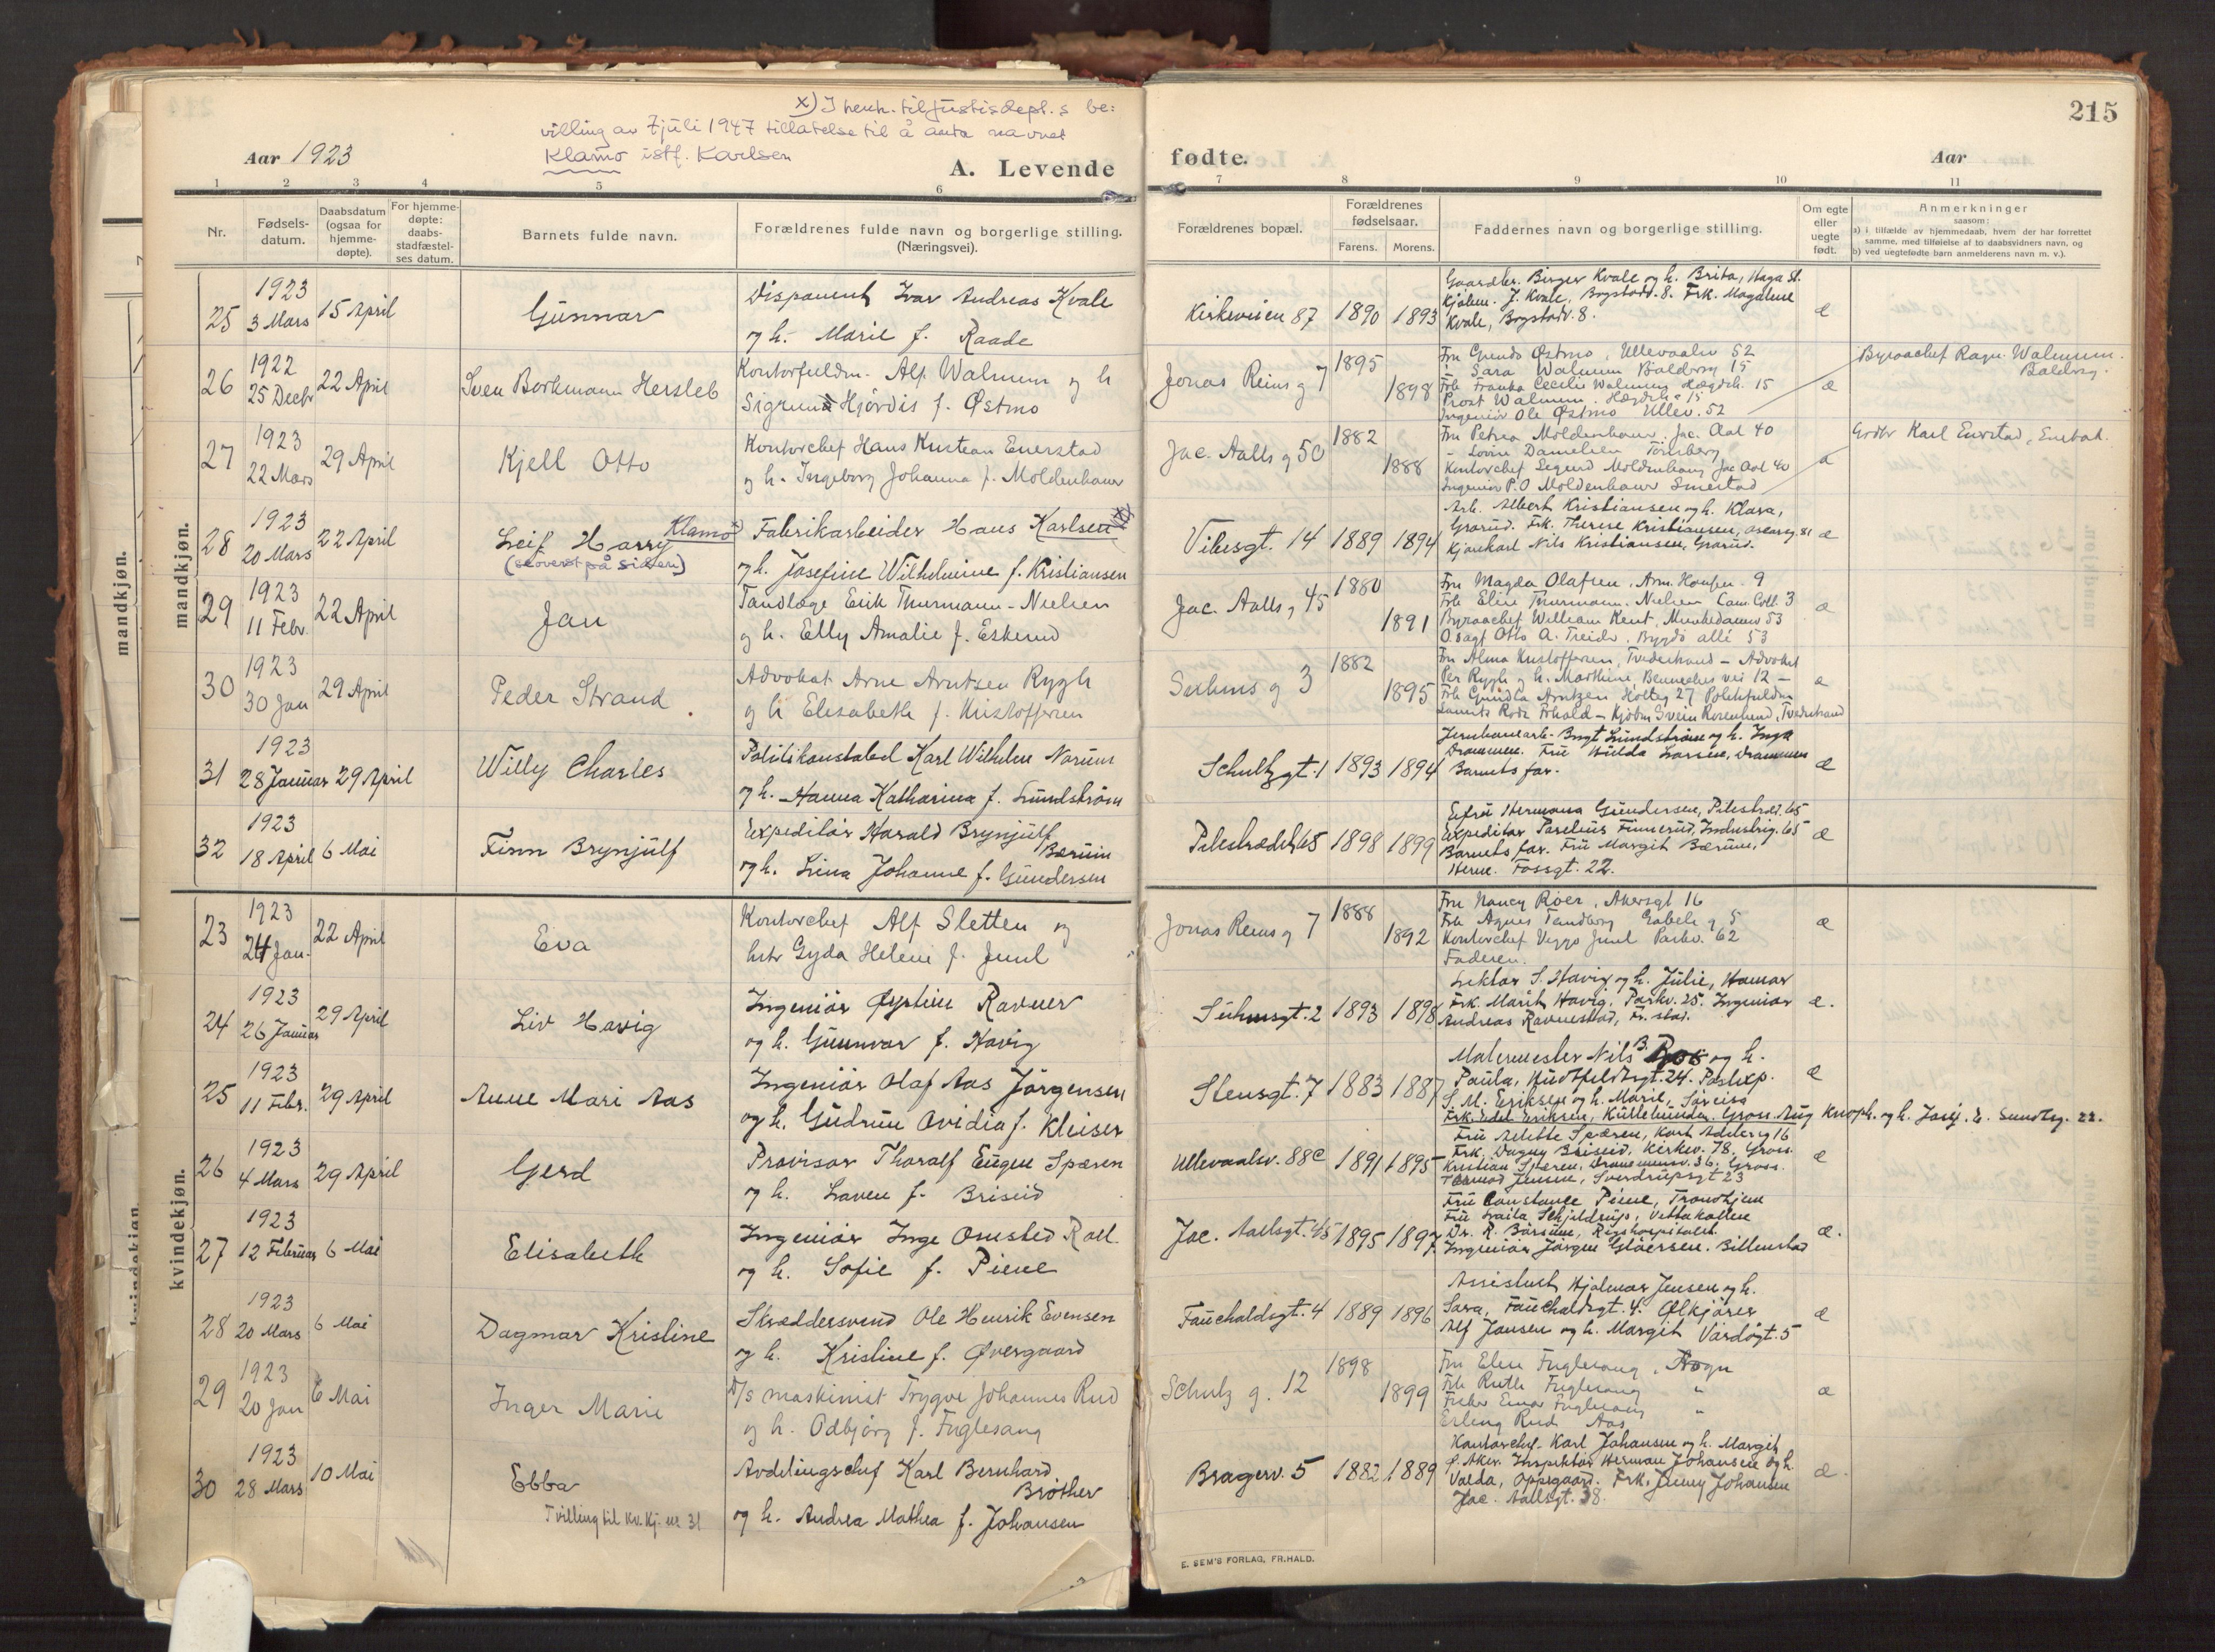 x) I henh. til Justisdept.s be:
villing av 7 juli 1947 tillatelse til å anta navnet
Klamo istf. Karlsen
Aar 1923
A. Levende
1 2 3 4 5 6
Nr. Fødsels-datum. Daabsdatum (ogsaa for hjemme-døpte). For hjemme-døpte: daabs-stadfæstel-ses datum. Barnets fulde navn. Forældrenes fulde navn og borgerlige stilling. (Næringsvei).
mandkjøn.
mandkjøn.
25 1923 3 Mars 15 April Gunnar Disponent Ivar Andreas Kvale
og h. Marie f. Raade
26 1922 25 Decbr 22 April Sven Borkmann Hersleb Kontorfuldm. Alf Walnum og h
Sigrun Hjördis f. Østmo
27 1923 22 Mars 29 April Kjell Otto Kontorchef Hans Kristean Enerstad
og h. Ingeborg Johanna f. Moldenhauer
28 1923 20 Mars 22 April Leif Harry Klamo Fabrikarbeider Hans Karlsen x)
(se øverst på siden) og h. Josefine Wilhelmine f. Kristiansen
29 1923 11 Febr. 22 April Jan Tandlæge Erik Thurmann-Nielsen
og h. Elly Amalie f. Eskerud
30 1923 30 Jan 29 April Peder Strand Advokat Arne Arntsen Rygh
og h Elisabeth f. Kristoffersen
31 1923 28 Januar 29 April Willy Charles Politikonstabel Karl Wilhelm Norum
og h. Hanna Katharina f. Lundström
32 1923 18 April 6 Mai Finn Brynjulf Expeditör Harald Brynjulf
Bærum
og h. Lina Johanne f. Gundersen
kvindekjøn.
kvindekjøn.
23 1923 24 Jan. 22 April Eva Kontorchef Alf Sletten og
hstr Gyda Helene f. Juul
24 1923 26 Januar 29 April Liv Havig Ingeniör Øystein Ravner
og h. Gunnvor f. Havig
25 1923 11 Febr. 29 April Anne Mari Aas Ingeniör Olaf Aas Jörgensen
og h. Gudrun Ovidia f. Kleiser
26 1923 4 Mars 29 April Gerd Provisor Thoralf Eugen Spæren
og h. Laven f. Briseid
27 1923 12 Februar 6 Mai Elisabeth Ingeniör Inge Omsted Roll.
og h. Sofie f. Piene
28 1923 20 Mars 6 Mai Dagmar Kristine Skræddersvend Ole Henrik Evensen
og h. Kristine f. Øvergaard
29 1923 20 Jan 6 Mai Inger Marie D/s maskinist Trygve Johannes Rud
og h. Odbjörg f. Fuglesang
30 1923 28 Mars 10 Mai Ebba Avdelingschef Karl Bernhard
Bröther
Tvilling til kv.kj. nr 31 og h. Andrea Mathea f. Johansen
215
fødte.
Aar
7 8 9 10 11
Forældrenes bopæl. Forældrenes fødselsaar. Farens. Morens. Faddernes navn og borgerlige stilling. Om egte eller uegte født. Anmerkninger
saasom:
a) i tilfælde av hjemmedaab, hvem der har forrettet
samme, med tilføielse af to daabsvidners navn, og
b) ved uegtefødte barn anmelderens navn m. v.).
Gaardbr. Birger Kvale og h. Brita, Haga st.
Kjøbm. J. Kvale, Bogstadv. 8. Frk. Magdalene
Kirkeveien 87 1890 1893 Kvale, Bogstadv. 8. æ
Fru Østmo, Ullevaalv 52 Byraachef Ragn. Walnum
" Sara Walnum Baldersg 15 Baldersg.
Jonas Reins g 7 1895 1898 Frk Franka Cecilie Walnum Hægdeh. 15 æ
Prost Walnum Hægdeh. 15
Ingeniør Ole Østmo Ullev. 52
Fru Petrea Moldenhauer, Jac. Aal 40 Grdbr Karl Enerstad
Danielsen Tönsberg
Jac. Aalls g 50 1882 1888 Kontorchef Sigurd Moldenhauer Jac Aal 40 æ
Ingeniør P.O Moldenhauer Smestad
Arb. Albert Kristiansen og h. Klara,
Grorud. Frk. Therese Kristiansen, 81
Vibesgt. 14 1889 1894 Nils Kristiansen, Grorud. æ
Fru Magda Olafsen, Arm. Hansen 9
Frk Elise Thurmann-Nielsen Cam. Coll. 3
Jac. Aalls g 45 1880 1891 Byraachef William Kent, Munkedamsv 53 æ
O.sagf Otto A. Treider, Bygdö allé 53
Fru Alma Kristoffersen, Tvedestrand - Advokat
Per Rygh og h. Marthine, Bennechs vei 12 -
Suhms g 3 1882 1895 Frk Arntzen Holteg 27 æ
Tvedestrand
Jernbanearb. Bngt Lundström og h. Inga
Drammen. Fru Hulda Larsen, Drammen
Schultzgt. 1 1893 1894 Barnets far. æ
Hermana Gundersen, Pilestræd. 65
Expeditør Finnerud, Industrig. 65
Pilestrædet 65 1898 1899 Barnets far. Fru Margit Bærum, æ
Fossgt. 22.
Fru Nancy Roer, Akersgt 16
Frk Agnes Tandberg Gabels g 5
Jonas Reins g 7 1888 1892 Kontorchef Viggo Juul Parkv. 62 æ
Faderen.
Lektor S. Havig og h. Julie, Hamar
Frk. Marit Havig, Parkv. 25. Ingeniør
Suhmsgt. 2 1893 1898 Andreas Ravnestad, Fr. stad. æ.
Malermester Nils B. Roo og h.
Paula, Huitfeldtsgt. 24. Postexp.
Stensgt. 7 1883 1887 S. M. Eriksen og h. Marie, æ
Frk. Edel Eriksen, Gross. Aug Knoph. og h. Josef. E. Sundtsg. 22.
Fru Spæren, Kort Adelersg 16
Frk. Dagny Briseid, Kirkev. 78, Gross.
Ullevaalsv. 88c 1891 1895 Kristian Spæren, Drammensv. 36, Gross. æ
Jensen, Sverdrupsgt 23
Fru Constance Piene, Trondhjem
Fru Laila Schjeldrup, Vettakollen
Jac. Aallsgt. 45 1895 1897 Dr. R. Börsum, Rigshospitalet æ.
Ingeniør Jörgen Glöersen. Billenstad
Assistent Hjalmar Jensen og h.
Sara, Fauchaldsgt. 4. Ølkjörer
Fauchaldsgt. 4 1889 1896 Alf Jansen og h. Margit Vardögt. 5 æ
Fru Elise Fuglesang,
Frk Ruth Fuglesang "
Schulz g. 12 1898 1899 Einar Fuglesang " æ
Erling Rud Aas
Kontorchef Karl Johansen og h. Margit
S. Aker. Inspektør Herman Johansen og h.
Bragerv. 5 1882 1889 Valda, Oppegaard. Frk. Jenny Johansen æ.
Jac. Aallsgt. 38.
E. SEM'S FORLAG, FR.HALD.